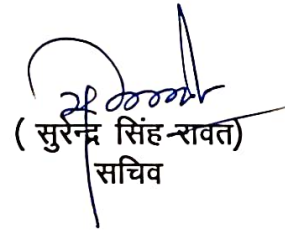 ( सुरेन्द्र सिंह रावत)
सचिव